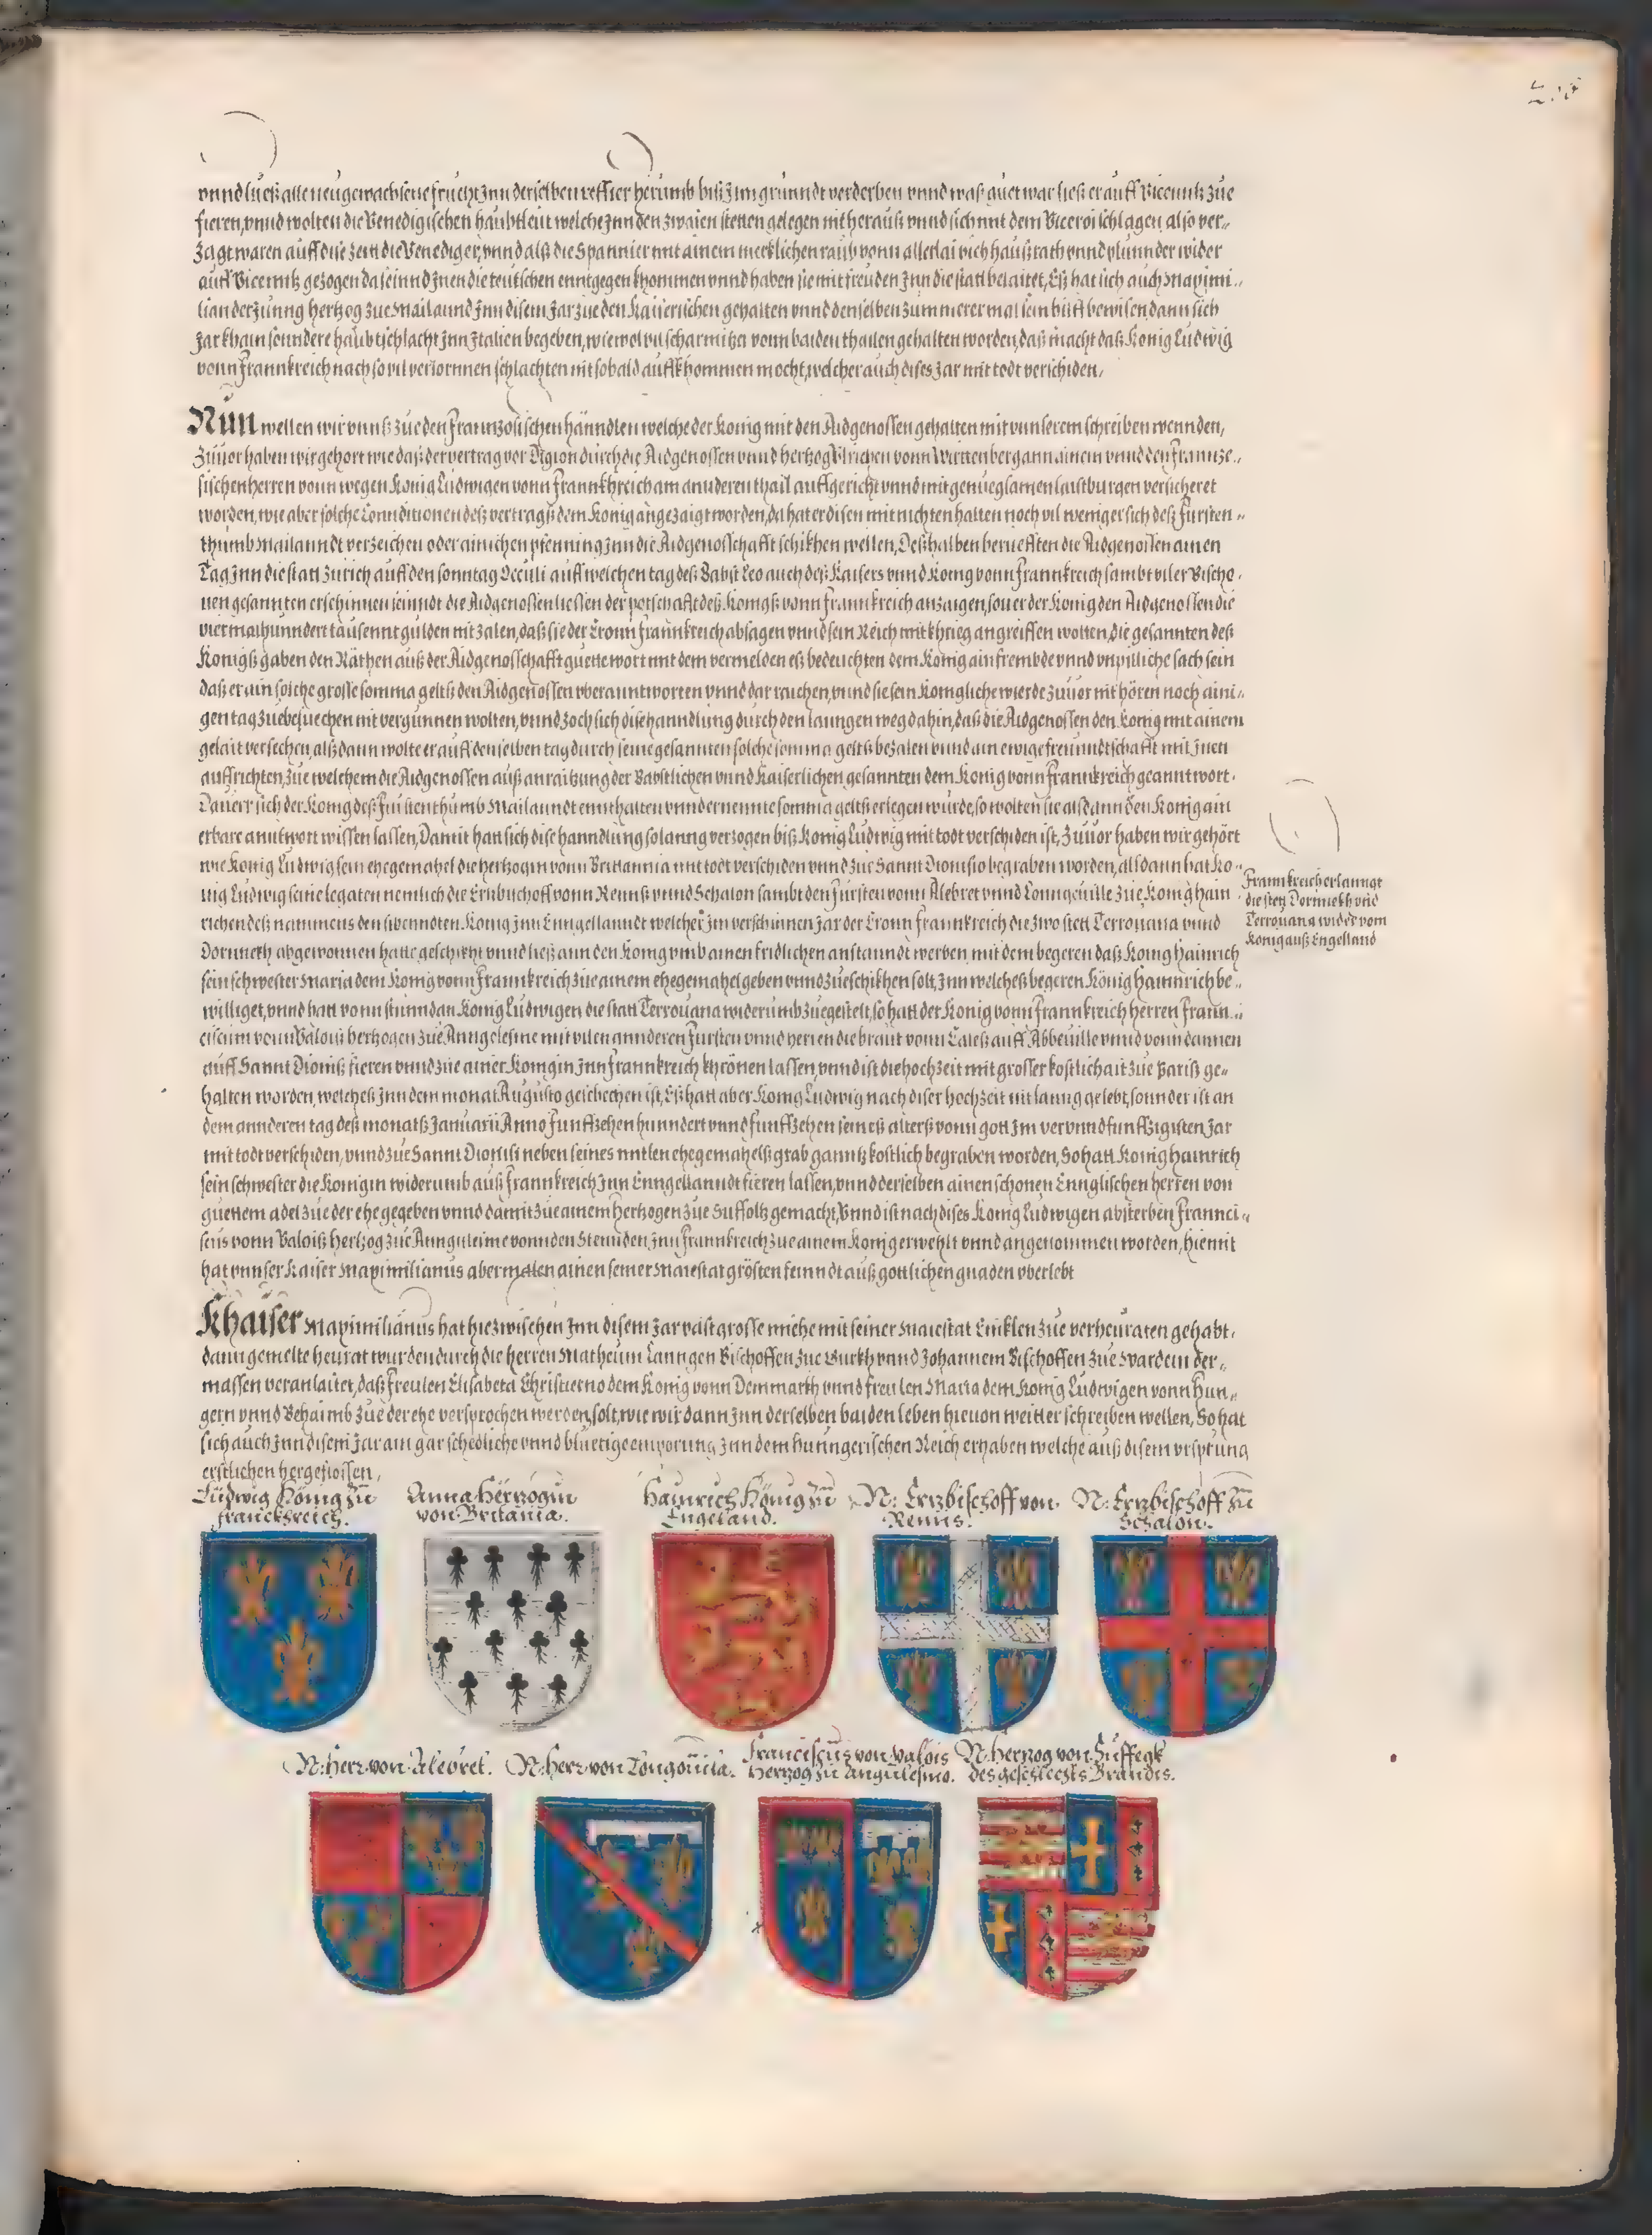 vnnd ließ alle neugewachsene frucht Inn derselben reffier herumb biß Im grunndt verderben vnnd waß guet war ließ er auff Vicenntz zue
fieren, vnnd wolten die Venedigischen haubtleut welche Inn den zwaien stetten gelegen nit herauß vnnd sich mit dem Viceroi schlagen, also ver-
zagt waren auff dise zeit die Venediger, vnnd alß die Spannier mit ainem mercklichen raub vonn allerlai vich haußrath vnnd plunnder wider
auff Vicenntz gezogen da seinnd Inen die teutschen enntgegen khommen vnnd haben sie mit freuden Inn die statt belaitet, Eß hat sich auch Maximi-
lian der Junng hertzog zue Mailannd Inn disem Jar zue den Kaiserischen gehalten vnnd denselben zum merer mal sein hilff bewisen dann sich
Jar khain sonndere haubtschlacht Inn Italien begeben, wiewol vil scharmitzl vonn baiden thailen gehalten worden, daß macht daß König Ludwig
vonn Frannkreich nach so vil verlornnen schlachten nit sobald auffkhommen mocht, welcher auch dises Jar mit todt verschiden,
Nun wellen wir vnnß zue den Frannzösischen hänndlen welche der König mit den Aidgenossen gehalten mit vnnserem schreiben wennden,
Zuuor haben wir gehört wie daß der vertrag vor Digion durch die Aidgenossen vnnd hertzog Vlrichen vonn Wirttenberg ann ainem vnnd den Frannze-
sischen herren vonn wegen König Ludwigen vonn Frannkhreich am annderen thail auffgericht vnnd mit genuegsamen laistburgen versicheret
worden, wie aber solche Connditionen deß vertragß dem König angezaigt worden, da hat er disen mit nichten halten noch vil weniger sich deß Fursten-
thumb Mailanndt verzeichen oder ainichen pfenning Inn die Aidgenosschafft schikhen wellen, Deßhalben berueften die Aidgenossen ainen
Tag Inn die statt Zurich auff den sonntag Occuli auff welchen tag deß Babst Leo auch deß Kaisers vnnd König vonn Frannkreich sambt viler Bischo-
uen gesannten erschinnen seinndt die Aidgenossen liessen der potschafft deß Königß vonn Frannkreich anzaigen, souer der König den Aidgenossen die
viermalhunndert tausennt gulden nit zalen, daß sie der Cronn Frannkreich absagen vnnd sein Reich mit khrieg angreiffen wolten, die gesannten deß
Königß gaben den Räthen auß der Aidgenosschafft guette wort mit dem vermelden eß bedeuchten dem König ain frembde vnnd vnpilliche sach sein
daß er ain solche grosse somma geltß den Aidgenossen vberanntworten vnnd dar raichen, vnnd sie sein Königliche wierde zuuor nit hören noch aini-
gen tag zuebesuechen nit vergunnen wolten, vnnd zoch sich dise hanndlung durch den lanngen weg dahin, daß die Aidgenossen den König mit ainem
gelait versechen, alßdann wolte er auff denselben tag durch seine gesannten solche somma geltß bezalen vnnd ain ewige freunndtschafft mit Inen
auffrichten, zue welchem die Aidgenossen auß anraitzung der Bäpstlichen vnnd Kaiserlichen gesannten dem König vonn Frannkreich geanntwort.
Da uerr sich der König deß Furstenthumb Mailanndt ennthalten vnnd ernennte somma geltß erlegen wurde, so wolten sie alßdann den König ain
erbare anntwort wissen lassen, Damit hatt sich dise hanndlung solanng verzogen biß König Ludwig mit todt verschiden ist, Zuuor haben wir gehört
wie König Ludwig sein ehegemahel die hertzogin vonn Brittannia mit todt verschiden vnnd zue Sannt Dionisio begraben worden, alßdann hat Kö-
nig Ludwig seine legaten nemlich die Ertzbischoff vonn Rennß vnnd Schalon sambt den Fürsten vonn Alebret vnnd Lonngeuille zue König hain-
richen deß nammens den sibennden König Inn Enngellanndt welcher Im verschinnen Jar der Cronn Frannkreich die zwo stett Terrouana vnnd
Dornneckh abgewonnen hatte geschikht vnnd ließ ann den König vmb ainen fridlichen anstanndt werben mit dem begeren daß König hainrich
sein schwester Maria dem König vonn Frannkreich zue ainem ehegemahel geben vnnd zueschikhen solt, Inn welcheß begeren König hainnrich be-
williget, vnnd hatt vonn stunndan König Ludwigen die statt Terrouana widerumb zuegestelt, so hatt der König vonn Frannkreich herren Frann-
ciscum vonn Valois hertzogen zue Anngolesme mit vilen annderen Fursten vnnd herren die braut vonn Caleß auff Abbeuille vnnd vonn dannen
auff Sannt Dioniß fieren vnnd zue ainer Königin Inn Frannkreich khrönen lassen, vnnd ist die hochzeit mit grosser kostlichait zue Pariß ge-
halten worden, welcheß Inn dem monat Augusto geschechen ist, Eß hatt aber König Ludwig nach diser hochzeit nit lanng gelebt, sonnder ist an
dem annderen tag deß monatß Januarii Anno funffzehenhunndert vnnd funffzehen seineß alterß vonn gott Im vervnndfunffzigisten Jar
mit todt verschiden, vnnd zue Sannt Dionisi neben seines mitlen ehegemahelß grab ganntz kostlich begraben worden, So hatt König hainrich
sein schwester die Königin widerumb auß Frannkreich Inn Enngellanndt fieren lassen, vnnd derselben ainen schonen Ennglischen herren von
guettem adel zue der ehe gegeben vnnd damit zue ainem hertzogen zue Suffoltz gemacht, Vnnd ist nach dises König Ludwigen absterben Frannci-
scus vonn Valoiß hertzog zue Anngulesme vonn den Stennden Inn Frannkreich zue ainem König erwehlt vnnd angenommen worden, hiemit
hat vnnser Kaiser Maximilianus abermalen ainen seiner Maiestat grösten feinndt auß gottlichen gnaden vberlebt
Khaiser Maximilianus hat hiezwischen Inn disem Jar vast grosse miehe mit seiner Maiestat Enklen zue verheuraten gehabt,
dann gemelte heurat wurden durch die herren Matheum Lanngen Bischoffen zue Gurkh vnnd Johannem Bischoffen zue Wardein der-
massen veranlaitet, daß freulen Elisabeta Christierno dem König vonn Denmarkh vnnd freulen Maria dem König Ludwigen vonn Hun-
gern vnnd Behaimb zue der ehe versprochen werden solt, wie wir dann Inn derselben baiden leben hieuon weitter schreiben wellen, So hat
sich auch Inn disem Jar ain gar schedliche vnnd bluetige emporung Inn dem Hunngerischen Reich erhaben welche auß disem vrsprung
erstlichen hergeflossen,
Frannkreich erlanngt
die stett Dornnekh vnd
Terrouana wider vom
König auß Engelland
Ludwig König zu
franckhreich.
Anna Hertzogin
von Britania.
Hainrich König zu
Engeland.
N: Ertzbischoff von
Renns.
N: Ertzbischoff zu
Schalon.
N: Herr von Alebret.
N: Herr von Longouila.
Franciscus von Valois
Hertzog zu Angulesmo.
N: Hertzog von Suffegk
des geschlechts Brandis.